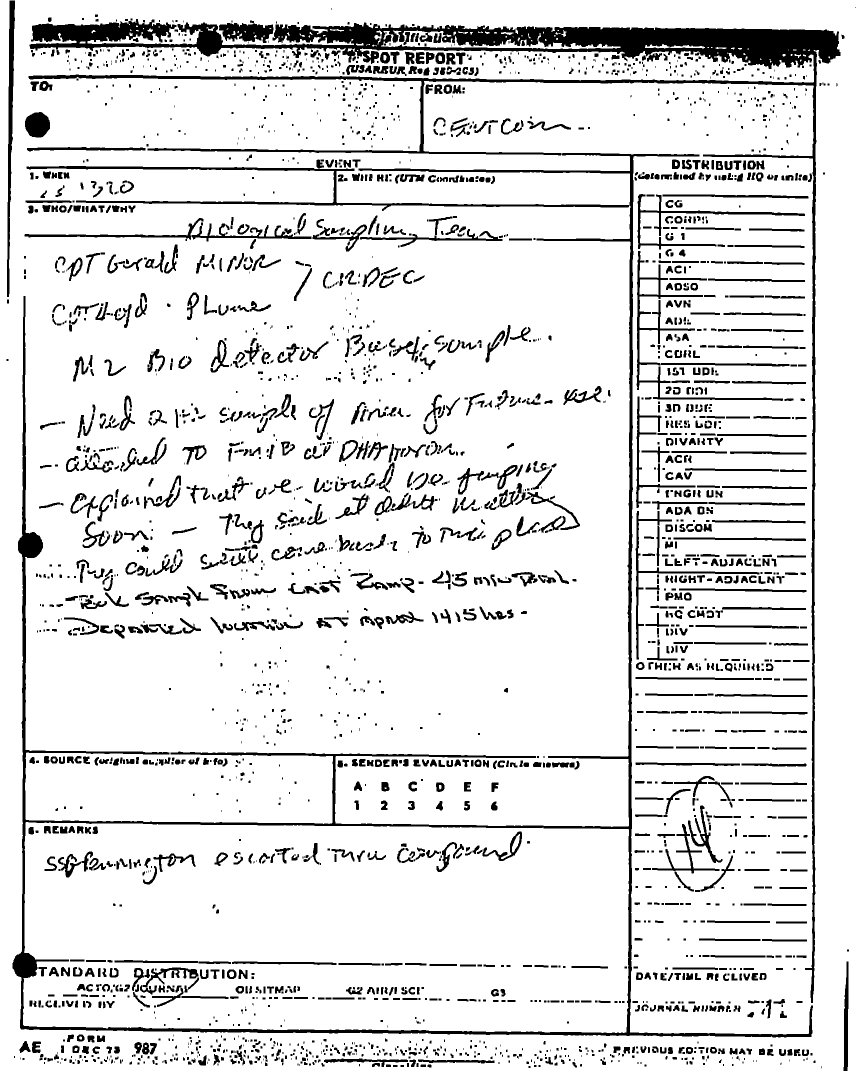 Classification
SPOT REPORT
(USAREUR Reg 380-203)
TO:
FROM:
CENTCOM
EVENT
1. WHEN
1320
2. WHERE (UTM Coordinates)
3. WHO/WHAT/WHY
Biological Sampling Team
CPT Gerald MINOR
CPT Plume
CRDEC
M2 Bio detector Baseline sample.
- Need a sample of Area for Future use.
- attached TO at DHAHARAN.
- Explained that we would be jumping
Soon. - They said it didn't matter
They could still come back to this place
- Took Sample From East Ramp - 45 min Total.
- Departed location AT Aprox 1415 hrs -
4. SOURCE (original supplier of info)
5. SENDER'S EVALUATION (Circle answers)
A B C D E F
1 2 3 4 5 6
6. REMARKS
SSG Pennington escorted thru Compound
DISTRIBUTION
(determined by using HQ or units)
CG
CORPS
G 1
G 4
ACI
ADSO
AVN
ADE
ASA
CBRE
1ST BDE
2D BDE
3D BDE
RES BDE
DIVARTY
ACR
CAV
ENGR BN
ADA BN
DISCOM
MI
LEFT-ADJACENT
RIGHT-ADJACENT
PMO
HQ CMDT
DIV
DIV
OTHER AS REQUIRED
14
STANDARD DISTRIBUTION:
ACTO/G2 JOURNAL OB SITMAP G2 AIR/ISCI G3
RECEIVED BY
DATE/TIME RECEIVED
JOURNAL NUMBER
AE FORM 1 DEC 73 987
PREVIOUS EDITION MAY BE USED.